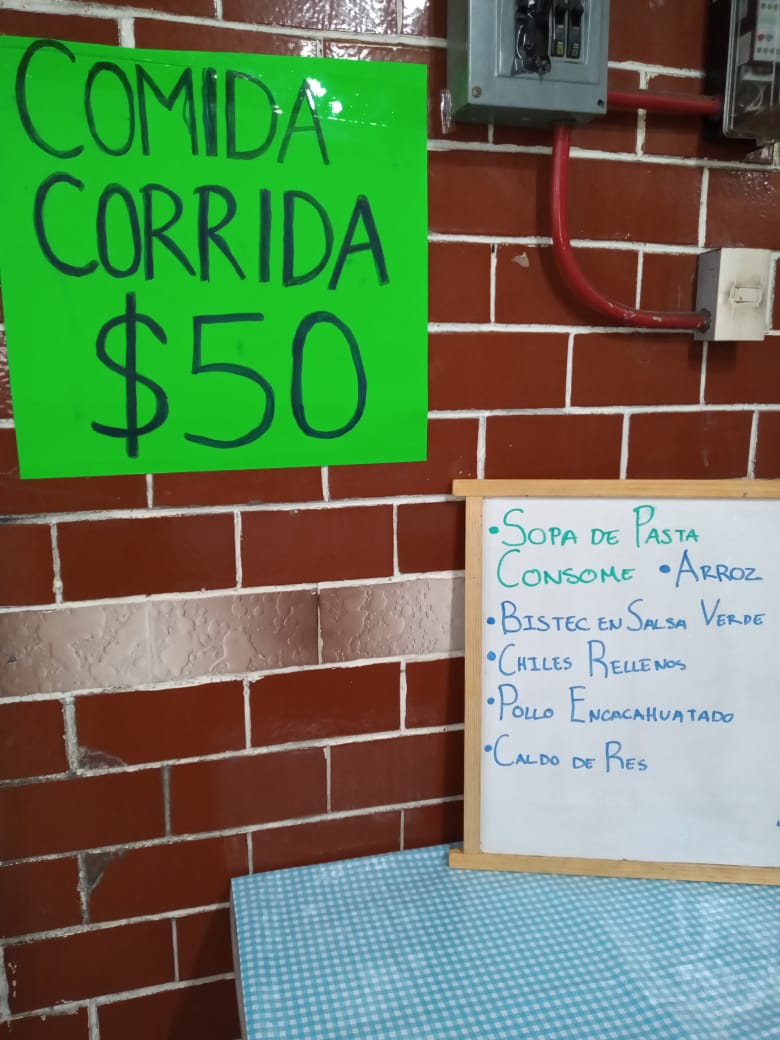 COMIDA
CORRIDA
$50
•SOPA DE PASTA
CONSOME •ARROZ
•BISTEC EN SALSA VERDE
•CHILES RELLENOS
•POLLO ENCACAHUATADO
•CALDO DE RES